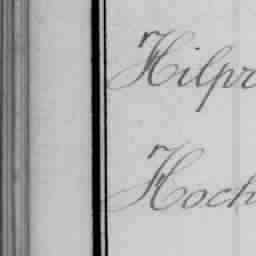 Hilpr
Hoch